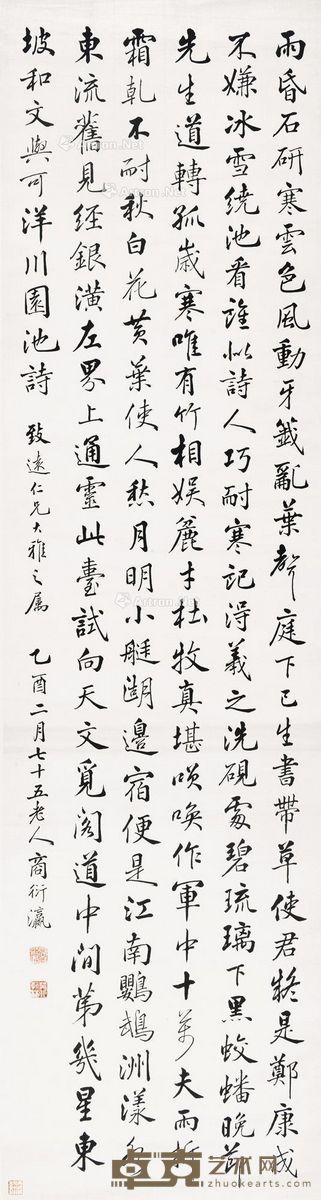 雨昏石研寒雲色風動牙籤亂葉聲庭下已生書帶草使君疑是鄭康成
不嫌冰雪繞池看誰似詩人巧耐寒記得羲之洗硯處碧琉璃下黑蛟蟠晚節
先生道轉孤歲寒唯有竹相娛麤才杜牧真堪唉喚作軍中十萬夫雨折
霜乾不耐秋白花黃葉使人愁月明小艇湖邊宿便是江南鸚鵡洲漾水
東流舊見經銀潢左界上通靈此臺試向天文覓閣道中間第幾星東
坡和文與可洋川園池詩
致遠仁兄大雅之屬
乙酉二月七十五老人商衍瀛
Artron.Net
艺术网
www.zhuokearts.com